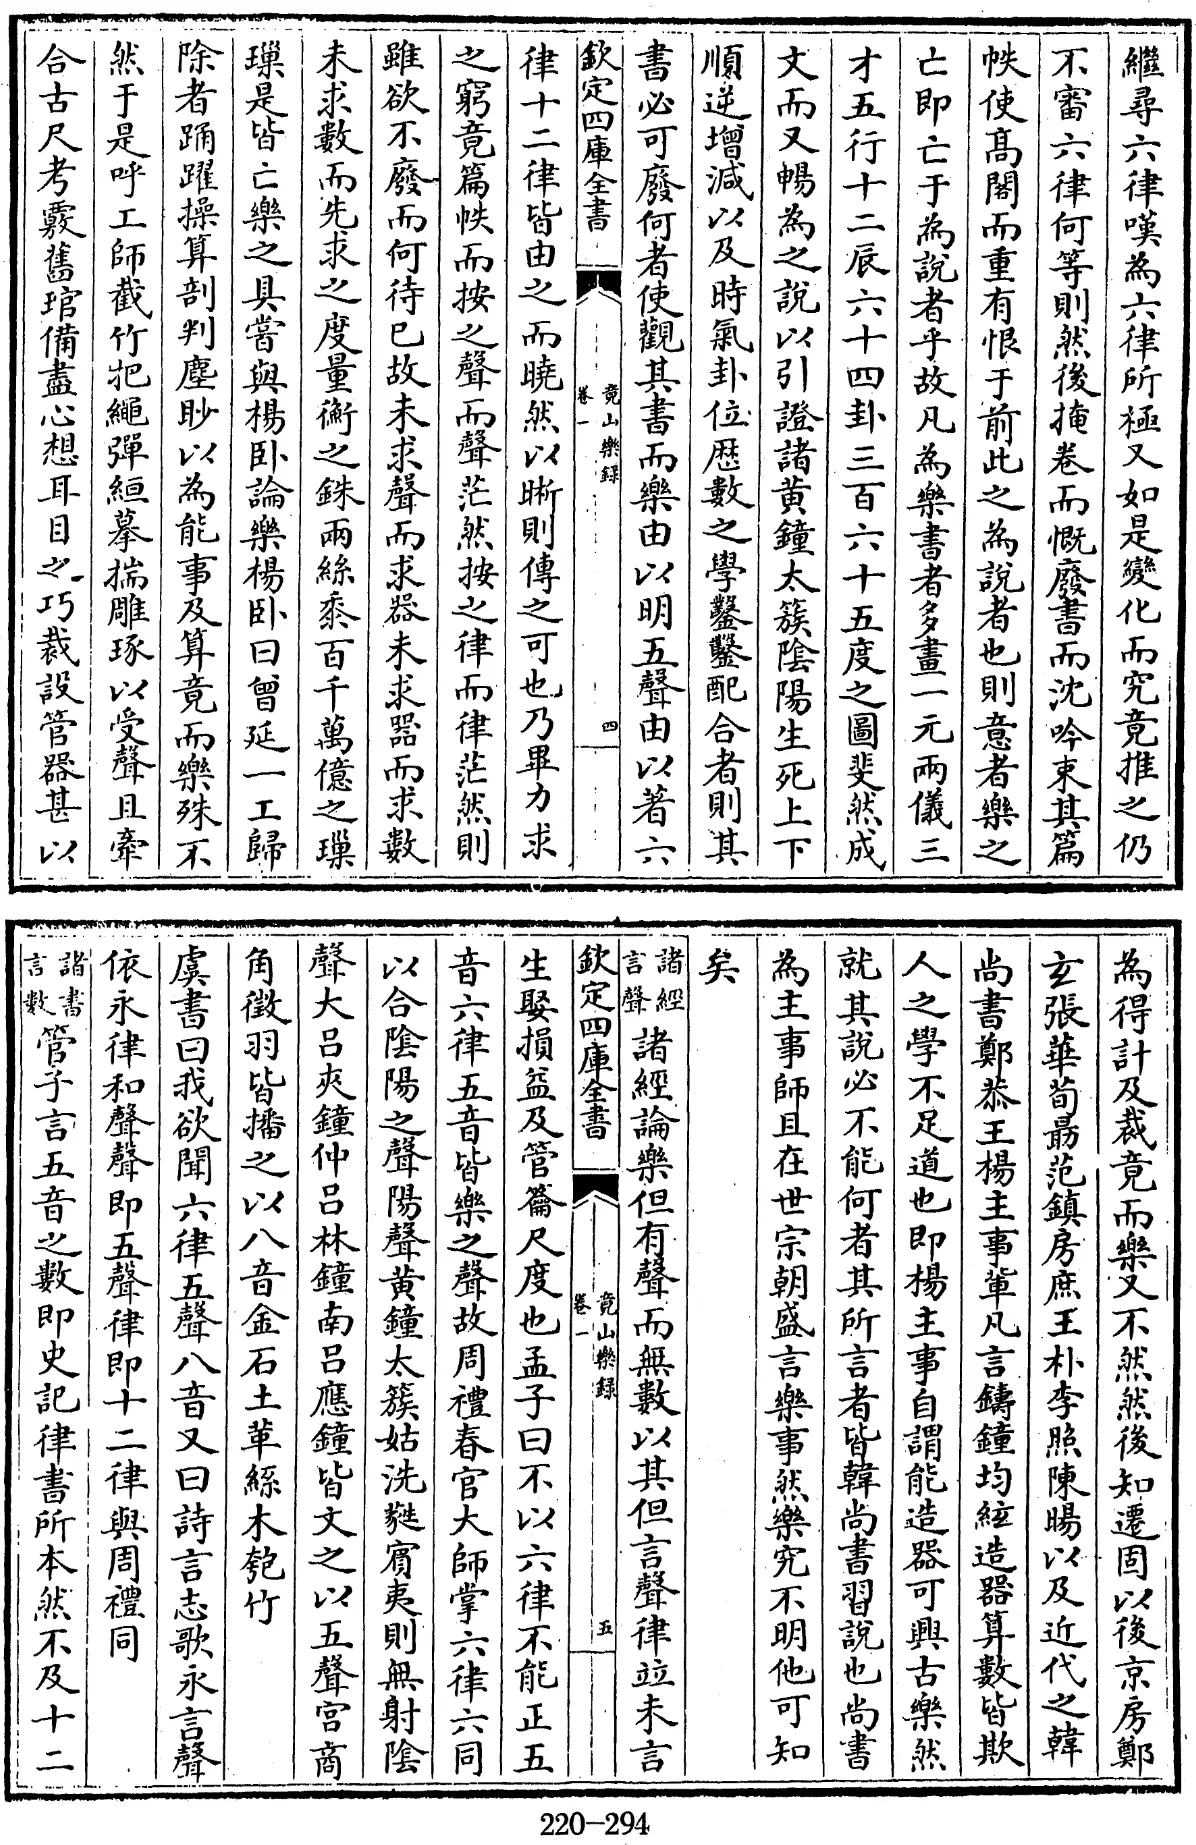 繼尋六律嘆為六律所極又如是變化而究竟推之仍
不審六律何等則然後掩卷而慨廢書而沈吟束其篇
帙使髙閣而重有恨于前此之為說者也則意者樂之
亡即亡于為說者乎故凡為樂書者多畫一元兩儀三
才五行十二辰六十四卦三百六十五度之圖斐然成
文而又暢為之說以引證諸黄鐘太簇隂陽生死上下
順逆增減以及時氣卦位歴數之學鑿鑿配合者則其
書必可廢何者使觀其書而樂由以明五聲由以著六
欽定四庫全書
竟山樂録
卷一
四
律十二律皆由之而曉然以晰則傳之可也乃畢力求
之窮竟篇帙而按之聲而聲茫然按之律而律茫然則
雖欲不廢而何待已故未求聲而求器未求器而求數
未求數而先求之度量衡之銖兩絲黍百千萬億之璅
璅是皆亡樂之具嘗與楊卧論樂楊卧曰曾延一工歸
除者踊躍操算剖判塵眇以為能事及算竟而樂殊不
然于是呼工師截竹把繩彈絙摹揣雕琢以受聲且牽
合古尺考覈舊琯備盡心想耳目之巧裁設管器甚以
為得計及裁竟而樂又不然然後知遷固以後京房鄭
玄張華荀勗范鎮房庶王朴李照陳暘以及近代之韓
尚書鄭恭王楊主事輩凡言鑄鐘均絃造器算數皆欺
人之學不足道也即楊主事自謂能造器可興古樂然
就其說必不能何者其所言者皆韓尚書習說也尚書
為主事師且在世宗朝盛言樂事然樂究不明他可知
矣
諸經言聲 諸經論樂但有聲而無數以其但言聲律竝未言
欽定四庫全書
竟山樂録
卷一
五
生娶損益及管籥尺度也孟子曰不以六律不能正五
音六律五音皆樂之聲故周禮春官大師掌六律六同
以合隂陽之聲陽聲黄鐘太簇姑洗蕤賓夷則無射隂
聲大呂夾鐘仲呂林鐘南呂應鐘皆文之以五聲宮商
角徵羽皆播之以八音金石土革絲木匏竹
虞書曰我欲聞六律五聲八音又曰詩言志歌永言聲
依永律和聲聲即五聲律即十二律與周禮同
諸書言數 管子言五音之數即史記律書所本然不及十二
220-294